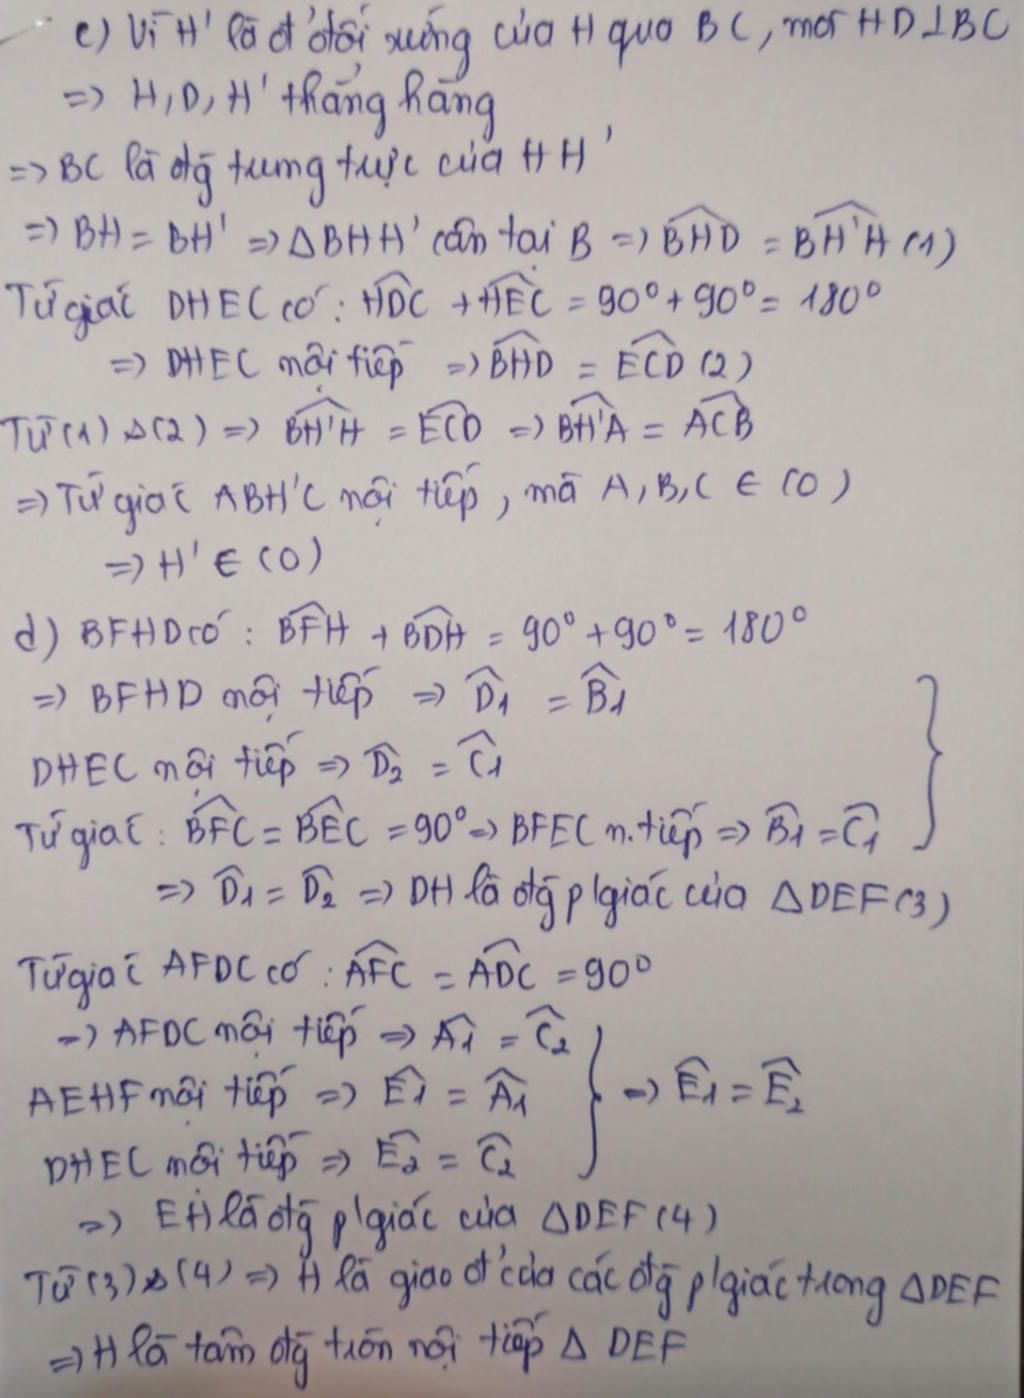 c) Vì H' là đ' đối xứng của H qua BC, mà HD⊥BC
=> H, D, H' thẳng hàng
=> BC là đg trung trực của HH'
=> BH = BH' => ΔBHH' cân tại B => \widehat{BHD} = \widehat{BH'H} (1)
Tứ giác DHEC có : \widehat{HDC} + \widehat{HEC} = 90° + 90° = 180°
=> DHEC nội tiếp => \widehat{BHD} = \widehat{ECD} (2)
Từ (1) & (2) => \widehat{BH'H} = \widehat{ECD} => \widehat{BH'A} = \widehat{ACB}
=> Tứ giác ABH'C nội tiếp, mà A, B, C ∈ (O)
=> H' ∈ (O)
d) BFHD có : \widehat{BFH} + \widehat{BDH} = 90° + 90° = 180°
=> BFHD nội tiếp => \widehat{D_1} = \widehat{B_1}
DHEC nội tiếp => \widehat{D_2} = \widehat{C_1}
Tứ giác : \widehat{BFC} = \widehat{BEC} = 90° => BFEC n.tiếp => \widehat{B_1} = \widehat{C_1}
=> \widehat{D_1} = \widehat{D_2} => DH là đg p/giác của ΔDEF (3)
Tứ giác AFDC có : \widehat{AFC} = \widehat{ADC} = 90°
=> AFDC nội tiếp => \widehat{A_1} = \widehat{C_2}
AEHF nội tiếp => \widehat{E_1} = \widehat{A_1} => \widehat{E_1} = \widehat{E_2}
DHEC nội tiếp => \widehat{E_2} = \widehat{C_2}
=> EH là đg p/giác của ΔDEF (4)
Từ (3) & (4) => H là giao đ' của các đg p/giác trong ΔDEF
=> H là tâm đg tròn nội tiếp Δ DEF